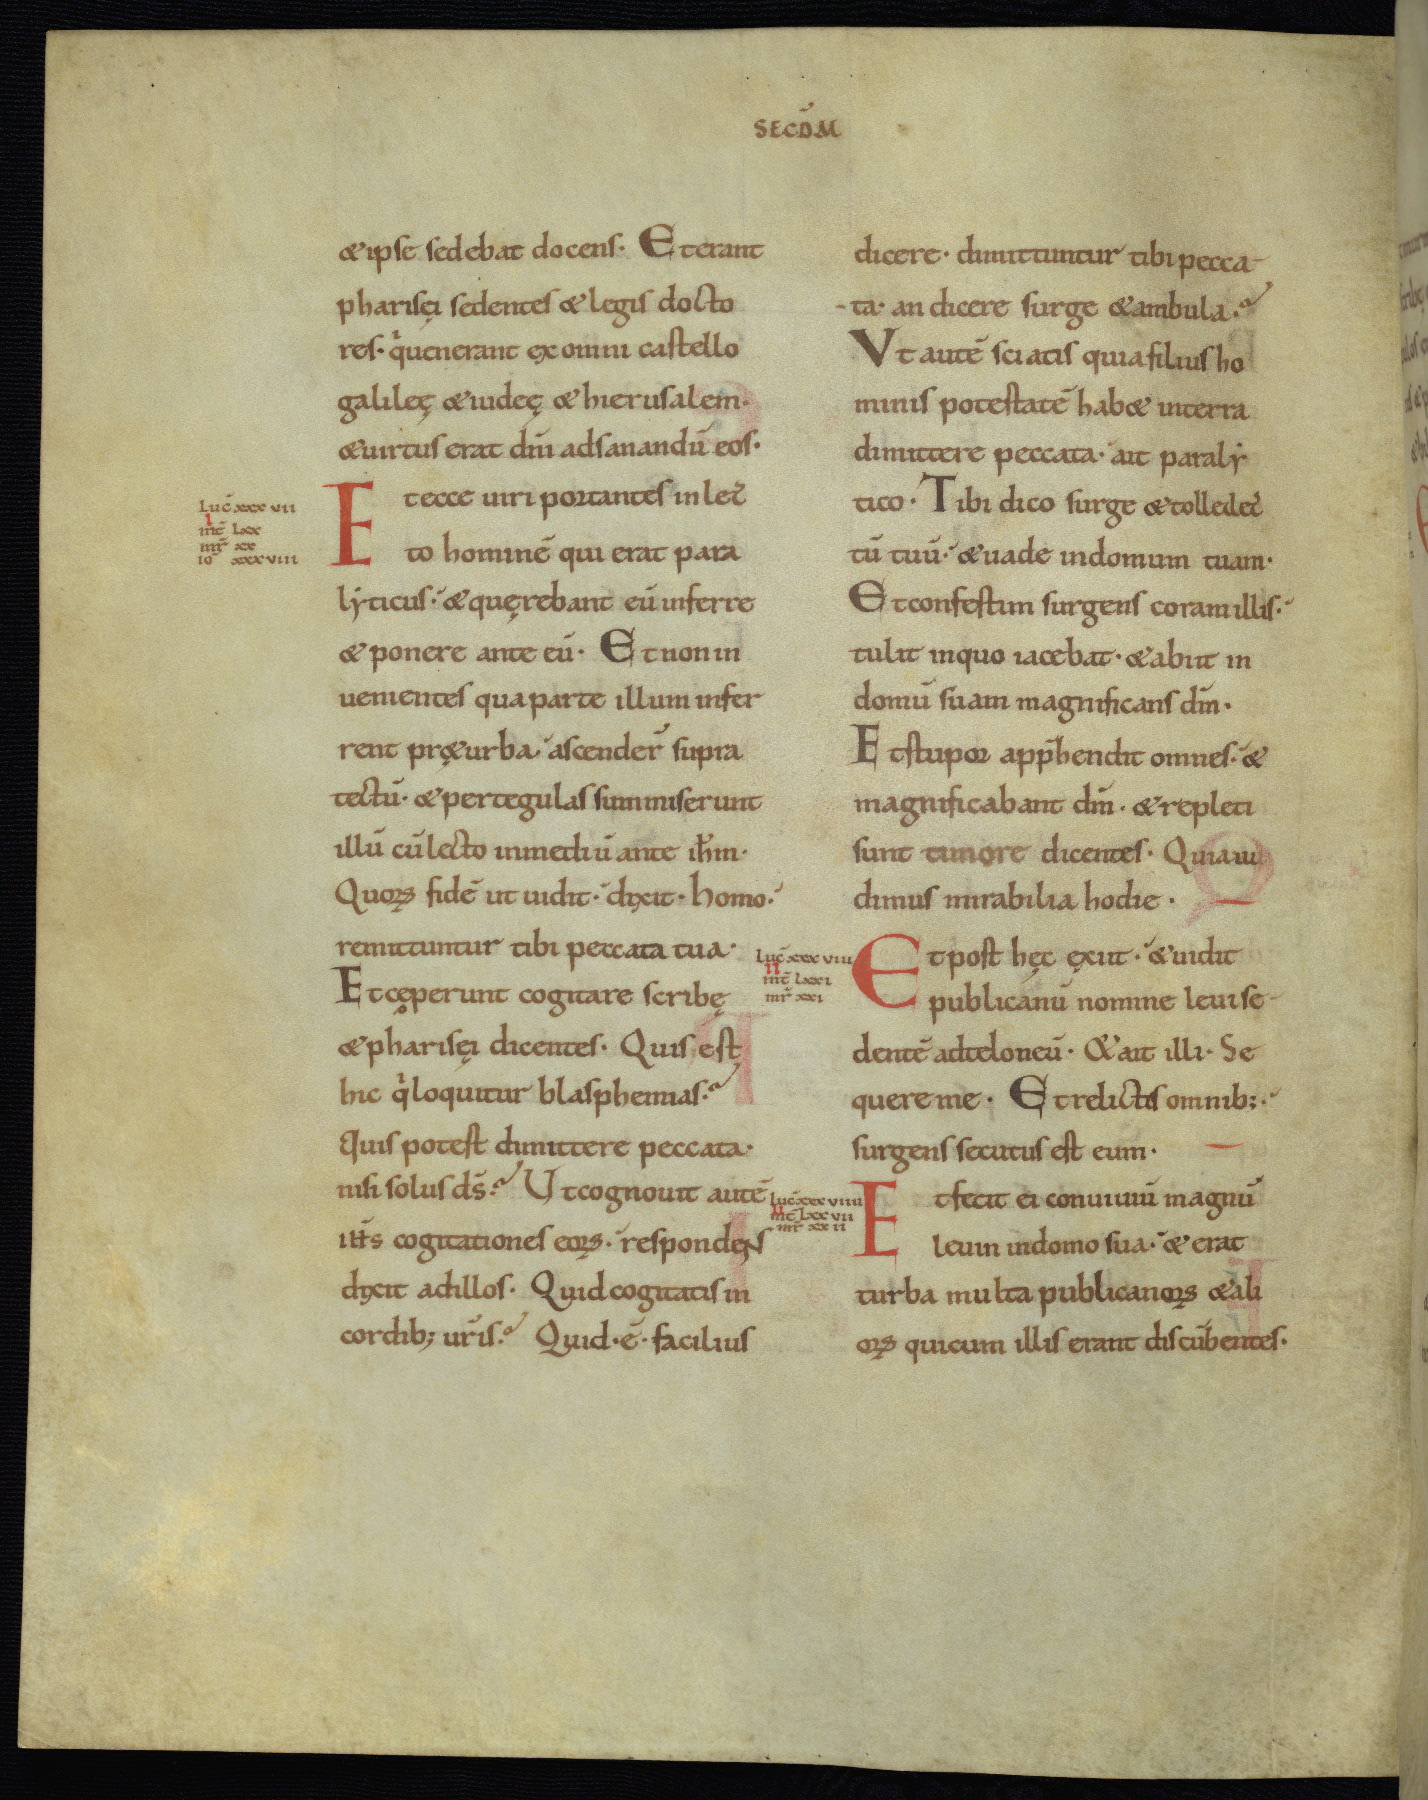 SECDM̄
& ipse sedebat docens· Et erant
pharisęi sedentes & legis docto
res· q̇ uenerant ex omni castello
galileę & iudeę & hierusalem·
& uirtus erat dn̄i ad sanandū eos·
Luc̄ xxx vii
I
mt̄ Lxx
mr̄ xx
io xxxviii
Et ecce uiri portantes in lec̄
to hominē qui erat para
lẏticus· & quęrebant eū inferre
& ponere ante eū· Et non in
uenientes qua parte illum infer
rent prę turba· ascender̄ supra
tectū· & per tegulas summiserunt
illū cū lecto in mediū ante ih̄m·
Quoꝝ fidē ut uidit· dixit· homo·
remittuntur tibi peccata tua·
Et cęperunt cogitare scribę
& pharisęi dicentes· Quis est
hic q̇ loquitur blasphemias·
Quis potest dimittere peccata·
nisi solus ds̄· Ut cognouit autē
ih̄s cogitationes eoꝝ· respondens
dixit ad illos· Quid cogitatis in
cordib; ur̄is· Quid· ē· facilius
dicere· dimittuntur tibi pecca-
-ta· an dicere surge & ambula·
Vt autē sciatis quia filius ho
minis potestatē hab& in terra
dimittere peccata· ait paralẏ
tico· Tibi dico surge & tolle lec̄
tū tuū· & uade in domum tuam·
Et confestim surgens coram illis·
tulit in quo iacebat· & abiit in
domū suam magnificans dm̄·
Et stupor app̄hendit omnes· &
magnificabant dm̄· & repleti
sunt timore dicentes· Quia ui
dimus mirabilia hodie·
Luc̄ xxx viii
II
mt̄ Lxxi
mr̄ xxi
Et post hęc exiit· & uidit
publicanū nomine leui se-
dentē ad teloneū· & ait illi· Se
quere me· Et relictis omnib;·
surgens secutus est eum·
Luc̄ xxx viiii
II
mt̄ Lxx vii
mr̄ xx ii
Et fecit ei conuiuiū magnū
leui in domo sua· & erat
turba multa publicanoꝝ & ali
oꝝ qui cum illis erant discūbentes·